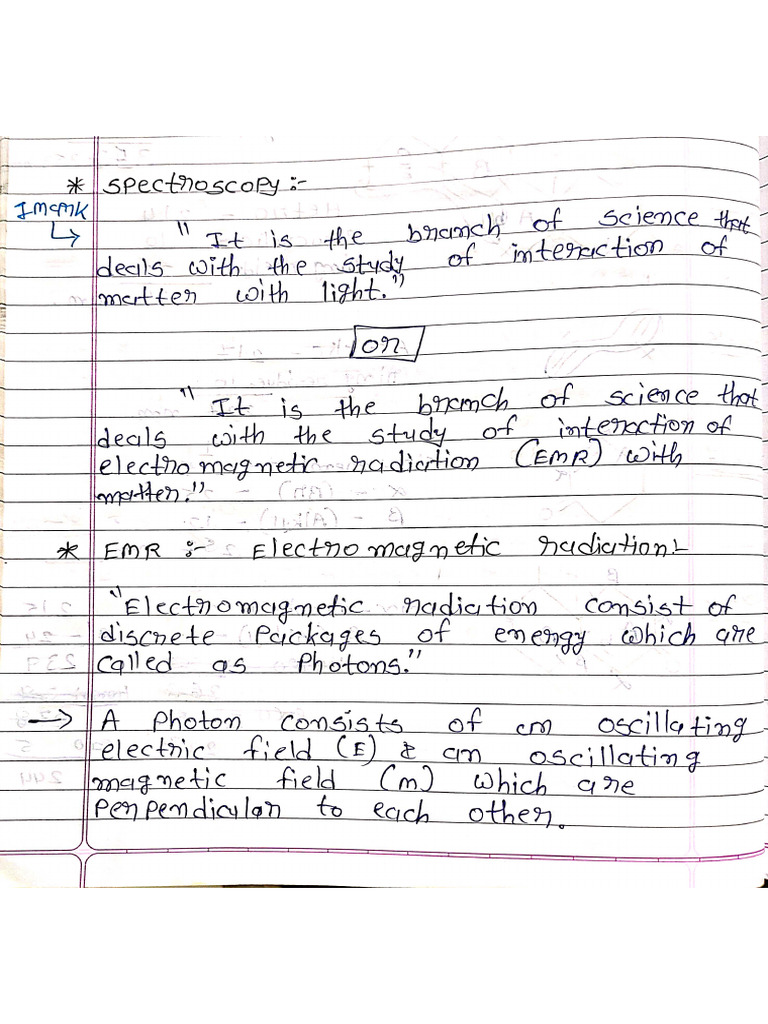 * Spectroscopy :-
Imark
" It is the branch of science that
deals with the study of interaction of
matter with light."
or
" It is the branch of science that
deals with the study of interaction of
electromagnetic radiation (EMR) with
matter."
* EMR :- Electromagnetic radiation:-
"Electromagnetic radiation consist of
discrete Packages of energy which are
called as Photons."
→ A Photon consists of an oscillating
electric field (E) & an oscillating
magnetic field (m) which are
Perpendicular to each other.